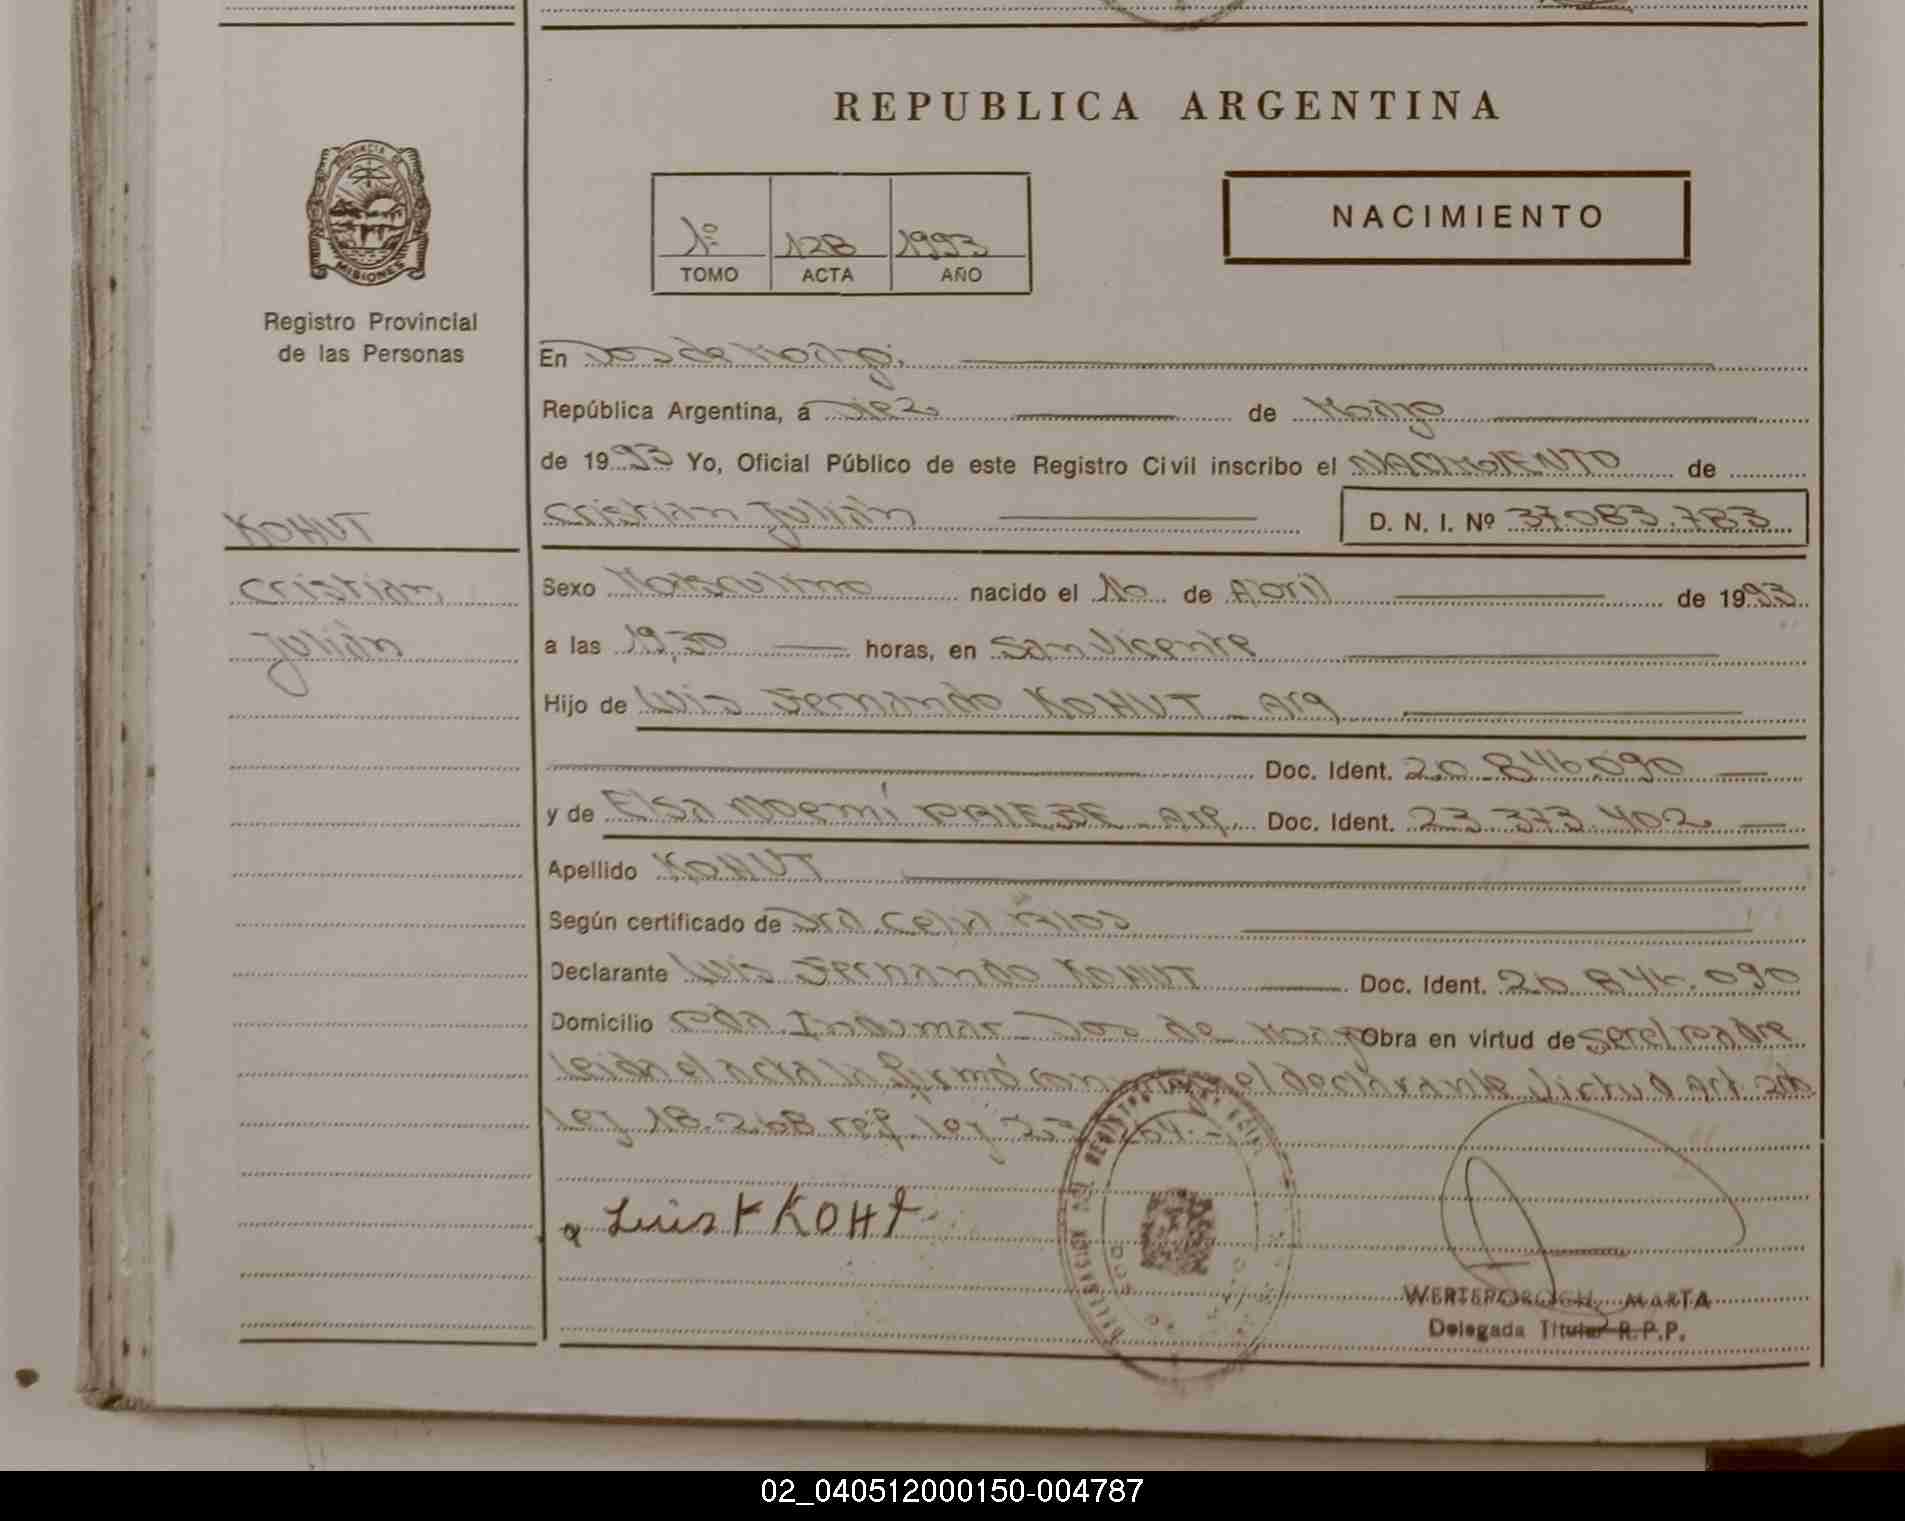 REPUBLICA ARGENTINA
PROVINCIA DE
MISIONES
Registro Provincial
de las Personas
1º 128 1993
TOMO ACTA AÑO
NACIMIENTO
En Dos de Mayo.
República Argentina, a diez de Mayo
de 1993 Yo, Oficial Público de este Registro Civil inscribo el NACIMIENTO de
KOHUT
Cristian Julián D. N. I. Nº 37.083.783
Cristian
Julián
Sexo Masculino nacido el 10 de Abril de 1993
a las 19,30 horas, en San Vicente
Hijo de Luis Fernando KOHUT - Arg
Doc. Ident. 20.846.090
y de Elsa Noemí PRIEBE - Arg. Doc. Ident. 23.373.402
Apellido KOHUT
Según certificado de Dra Celia
Declarante Luis Fernando KOHUT Doc. Ident. 20.846.090
Domicilio Dos de Mayo Obra en virtud de ser el padre
leida el acta la firmó el declarante Virtud Art.
ley 18.268 ley
Luis F KOHT
WERTEPOROCH, MARTA
Delegada Titular R.P.P.
02_040512000150-004787